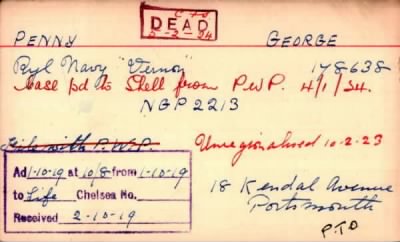 DEAD
5-2-24
PENNY GEORGE
Ryl Navy "Vernon" 178638
Case pd to Stell from P.W.P. 4/1/24.
NGP 2213
File with P.W.P. Unregionalised 10-2-23
Ad 1-10-19 at 10/8 from 1-10-19
to Life Chelsea No.
Received 2-10-19
18 Kendal Avenue
Portsmouth
P.T.O